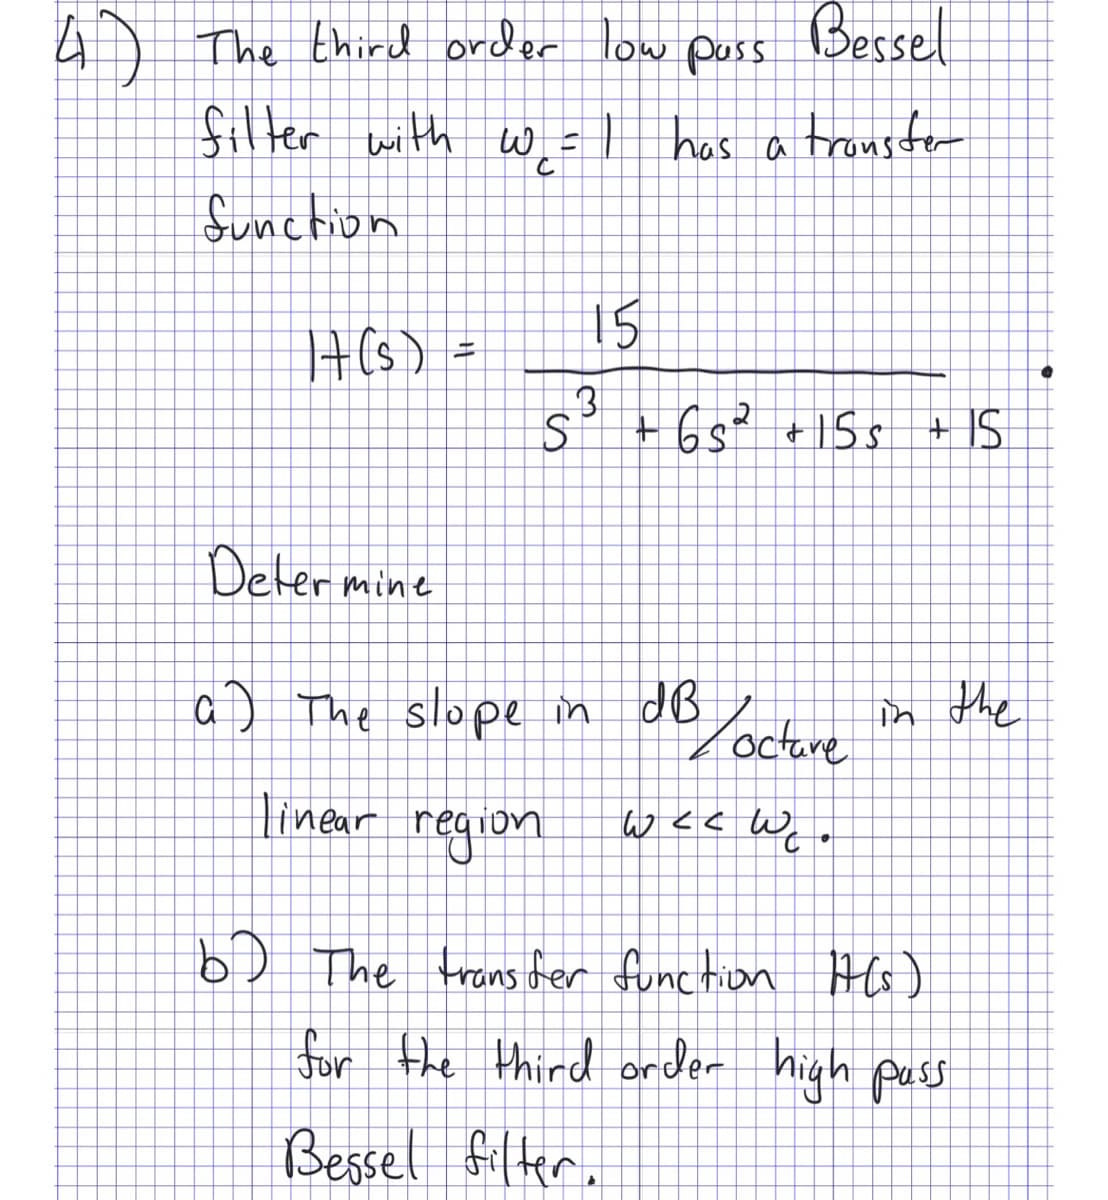 4) The third order low pass Bessel
filter with ω_c = 1 has a transfer
function
H(s) = 15 / (s³ + 6s² + 15s + 15) .
Determine
a) The slope in dB/octave in the
linear region ω << ω_c .
b) The transfer function H(s)
for the third order high pass
Bessel filter.